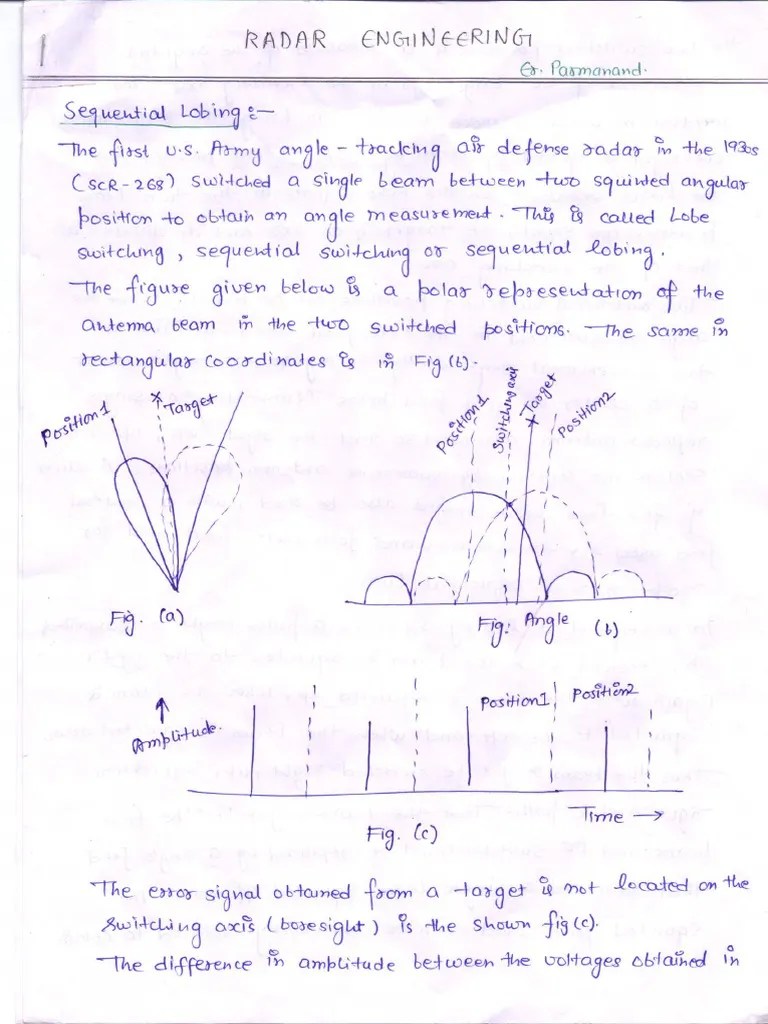 1
RADAR ENGINEERING
Er. Parmanand.
Sequential Lobing :-
The first U.S. Army angle - tracking air defense radar in the 1930s
(SCR-268) switched a single beam between two squinted angular
position to obtain an angle measurement. This is called Lobe
switching, sequential switching or sequential lobing.
The figure given below is a polar representation of the
antenna beam in the two switched positions. The same in
rectangular coordinates is in Fig (b).
Position1
Target
Position1
Switching axis
Target
Position2
Fig. (a)
Fig. Angle (b)
Amplitude.
Position1
Position2
Time
Fig. (c)
The error signal obtained from a target is not located on the
switching axis (boresight) is the shown fig (c).
The difference in amplitude between the voltages obtained in